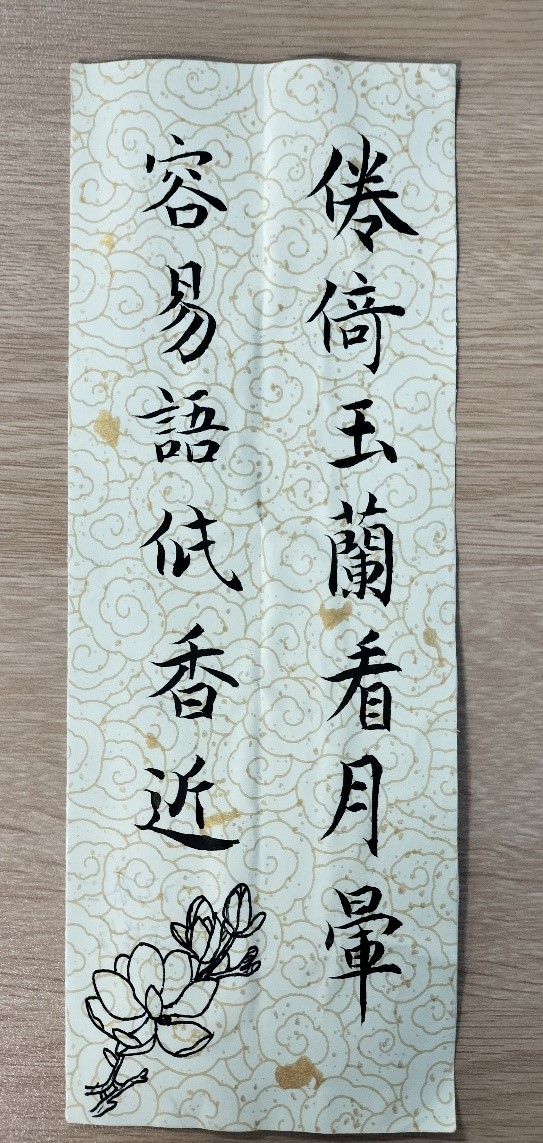 倦倚玉蘭看月暈
容易語低香近